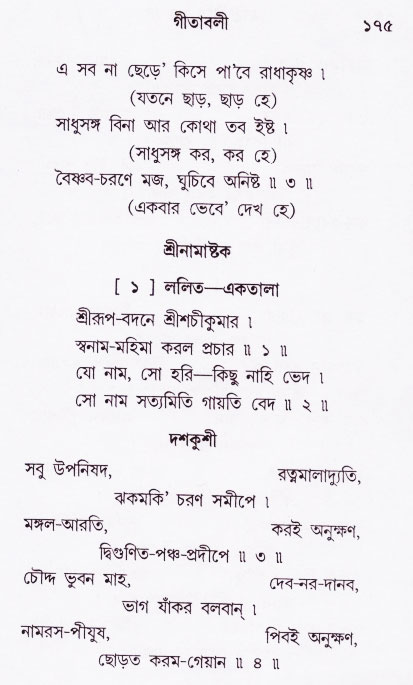 গীতাবলী ১৭৫
এ সব না ছেড়ে' কিসে পা'বে রাধাকৃষ্ণ ।
(যতনে ছাড়, ছাড় হে)
সাধুসঙ্গ বিনা আর কোথা তব ইষ্ট ।
(সাধুসঙ্গ কর, কর হে)
বৈষ্ণব-চরণে মজ, ঘুচিবে অনিষ্ট ॥ ৩ ॥
(একবার ভেবে' দেখ হে)
শ্রীনামাষ্টক
[ ১ ] ললিত—একতালা
শ্রীরূপ-বদনে শ্রীশচীকুমার ।
স্বনাম-মহিমা করল প্রচার ॥ ১ ॥
যো নাম, সো হরি—কিছু নাহি ভেদ ।
সো নাম সত্যমিতি গায়তি বেদ ॥ ২ ॥
দশকুশী
সবু উপনিষদ, রত্নমালাদ্যুতি,
ঝকমকি' চরণ সমীপে ।
মঙ্গল-আরতি, করই অনুক্ষণ,
দ্বিগুণিত-পঞ্চ-প্রদীপে ॥ ৩ ॥
চৌদ্দ ভুবন মাহ, দেব-নর-দানব,
ভাগ যাঁকর বলবান্ ।
নামরস-পীযুষ, পিবই অনুক্ষণ,
ছোড়ত করম-গেয়ান ॥ ৪ ॥